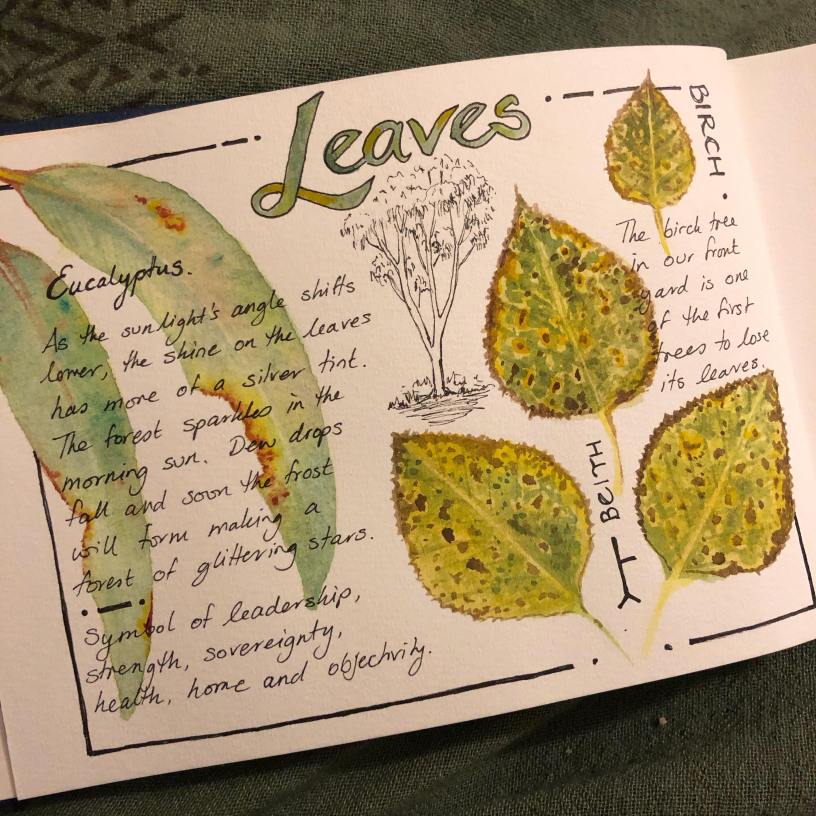 Leaves
Eucalyptus.
As the sunlight's angle shifts
lower, the shine on the leaves
has more of a silver tint.
The forest sparkles in the
morning sun. Dew drops
fall and soon the frost
will form making a
forest of glittering stars.
Symbol of leadership,
strength, sovereignty,
health, home and objectivity.
BIRCH
The birch tree
in our front
yard is one
of the first
trees to lose
its leaves.
BEITH